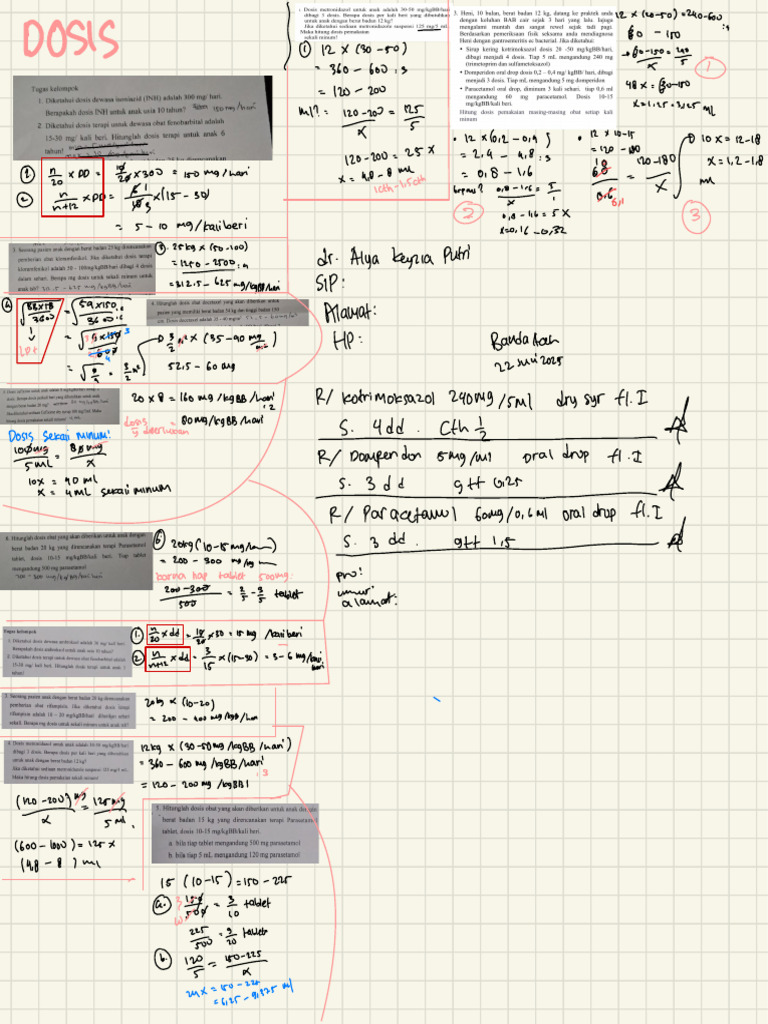 DOSIS
Tugas kelompok
1. Diketahui dosis dewasa isoniazid (INH) adalah 300 mg/ hari.
Berapakah dosis INH untuk anak usia 10 tahun?
2. Diketahui dosis terapi untuk dewasa obat fenobarbital adalah
15-30 mg/ kali beri. Hitunglah dosis terapi untuk anak 6
tahun!
n/20 × DD = 10/20 × 300 = 150 mg/hari
n/n+12 × DD = 6/18 × (15 - 30)
= 5 - 10 mg/kali beri
3. Seorang pasien anak dengan berat badan 25 kg direncanakan
pemberian obat kloramfenikol. Jika diketahui dosis terapi
kloramfenikol adalah 50 - 100mg/kgBB/hari dibagi 4 dosis
dalam sehari. Berapa mg dosis untuk sekali minum untuk
anak
3. 25kg × (50-100)
= 1250 - 2500 : 4
= 312.5 - 625 mg/kgBB/hari
52.5 - 60 mg
20 × 8 = 160 mg/kgBB/hari
: 2
= 80 mg/kgBB/hari
Dosis sekali minum:
100mg/5 mL = 80mg/x
10x = 40 ml
x = 4 mL sekali minum
6. Hitunglah dosis obat yang akan diberikan untuk anak dengan
berat badan 20 kg yang direncanakan terapi Parasetamol
tablet, dosis 10-15 mg/kgBB/kali beri. Tiap tablet
mengandung 500 mg parasetamol
= 200 - 300
karna tiap tablet 500mg:
200-300/500 = 2/5 - 3/5 tablet
Tugas kelompok
1. n/20 × dd = 10/20 × 30 = 15 mg /kali beri
2. n/n+12 × dd = 3/15 × (15-30) = 3 - 6 mg/kali beri
3. Seorang pasien anak dengan berat badan 20 kg direncanakan
pemberian obat rifampisin. Jika diketahui dosis terapi
rifampisin adalah 10 - 20 mg/kgBB/hari diberikan sehari
sekali. Berapa mg dosis untuk sekali minum untuk anak ini?
20kg × (10-20)
= 200 - 400 mg/kgBB/hari
4. Dosis metronidazol untuk anak adalah 30-50 mg/kgBB/hari
dibagi 3 dosis. Berapa dosis per kali beri yang dibutuhkan
untuk anak dengan berat badan 12 kg?
Jika diketahui sediaan metronidazole suspensi 125 mg/5 mL
Maka hitung dosis pemakaian sekali minum!
12kg × (30-50 mg/kgBB/hari)
= 360 - 600 mg/kgBB/hari
: 3
= 120 - 200 mg/kgBB
(120-200) mg/x = 125 mg/5 ml
(600 - 1000) = 125 x
(4,8 - 8) ml
5. Hitunglah dosis obat yang akan diberikan untuk anak dengan
berat badan 15 kg yang direncanakan terapi Parasetamol
tablet, dosis 10-15 mg/kgBB/kali beri.
a. bila tiap tablet mengandung 500 mg parasetamol
b. bila tiap 5 mL mengandung 120 mg parasetamol
15 (10-15) = 150 - 225
a. 150/500 = 3/10 tablet
225/500 = 9/20 tablet
b. 120/5 = 150-225/x
24x = 150 - 225
= 6,25 - 9,375 ml
. Dosis metronidazol untuk anak adalah 30-50 mg/kgBB/hari
dibagi 3 dosis. Berapa dosis per kali beri yang dibutuhkan
untuk anak dengan berat badan 12 kg?
Jika diketahui sediaan metronidazole suspensi 125 mg/5 mL
Maka hitung dosis pemakaian
sekali minum!
1 12 × (30 - 50)
= 360 - 600 : 3
= 120 - 200
ml?: 120-200/x = 125/5
120-200 = 25 x
x = 4,8 - 8 ml
1cth - 1,5cth
3. Heni, 10 bulan, berat badan 12 kg, datang ke praktek anda
dengan keluhan BAB cair sejak 3 hari yang lalu. Ia juga
mengalami muntah dan sangat rewel sejak tadi pagi.
Berdasarkan pemeriksaan fisik seksama anda mendiagnosa
Heni dengan gastroenteritis ec bacterial. Jika diketahui:
• Sirup kering kotrimoksazol dosis 20 -50 mg/kgBB/hari,
dibagi menjadi 4 dosis. Tiap 5 mL mengandung 240 mg
(trimetoprim dan sulfametoksazol)
• Domperidon oral drop dosis 0,2 – 0,4 mg/ kgBB/ hari, dibagi
menjadi 3 dosis. Tiap mL mengandung 5 mg domperidon
• Paracetamol oral drop, diminum 3 kali sehari, tiap 0,6 ml
mengandung 60 mg paracetamol. Dosis 10-15
mg/kgBB/kali
Hitung dosis pemakaian masing-masing obat setiap kali
12 × (20-50) = 240-600
: 4
60 - 150
→ 60-150/x = 240/5
48 x = 60-150
x = 1,25 - 3,125 ml
1
• 12 × (0,2 - 0,4)
= 2,4 - 4,8 : 3
= 0,8 - 1,6
0,8 - 1,6/x = 5/1
0,8 - 1,6 = 5 x
x = 0,16 - 0,32
2
• 12 × 10-15
= 120 - 180
60/0,6 = 120-180/x
10 x = 12-18
x = 1,2 - 1,8
ml
3
dr. Alya Keyzia Putri
SIP:
Alamat:
HP:
Banda Aceh
22 Juni 2025
R/ Kotrimoksazol 240mg/5ml dry syr fl. I
S. 4 dd. Cth 1/2
R/ Domperidon 5mg/ml oral drop fl. I
S. 3 dd gtt 0,25
R/ Paracetamol 60mg/0,6 ml oral drop fl. I
S. 3 dd. gtt 1,5
pro:
umur:
alamat: